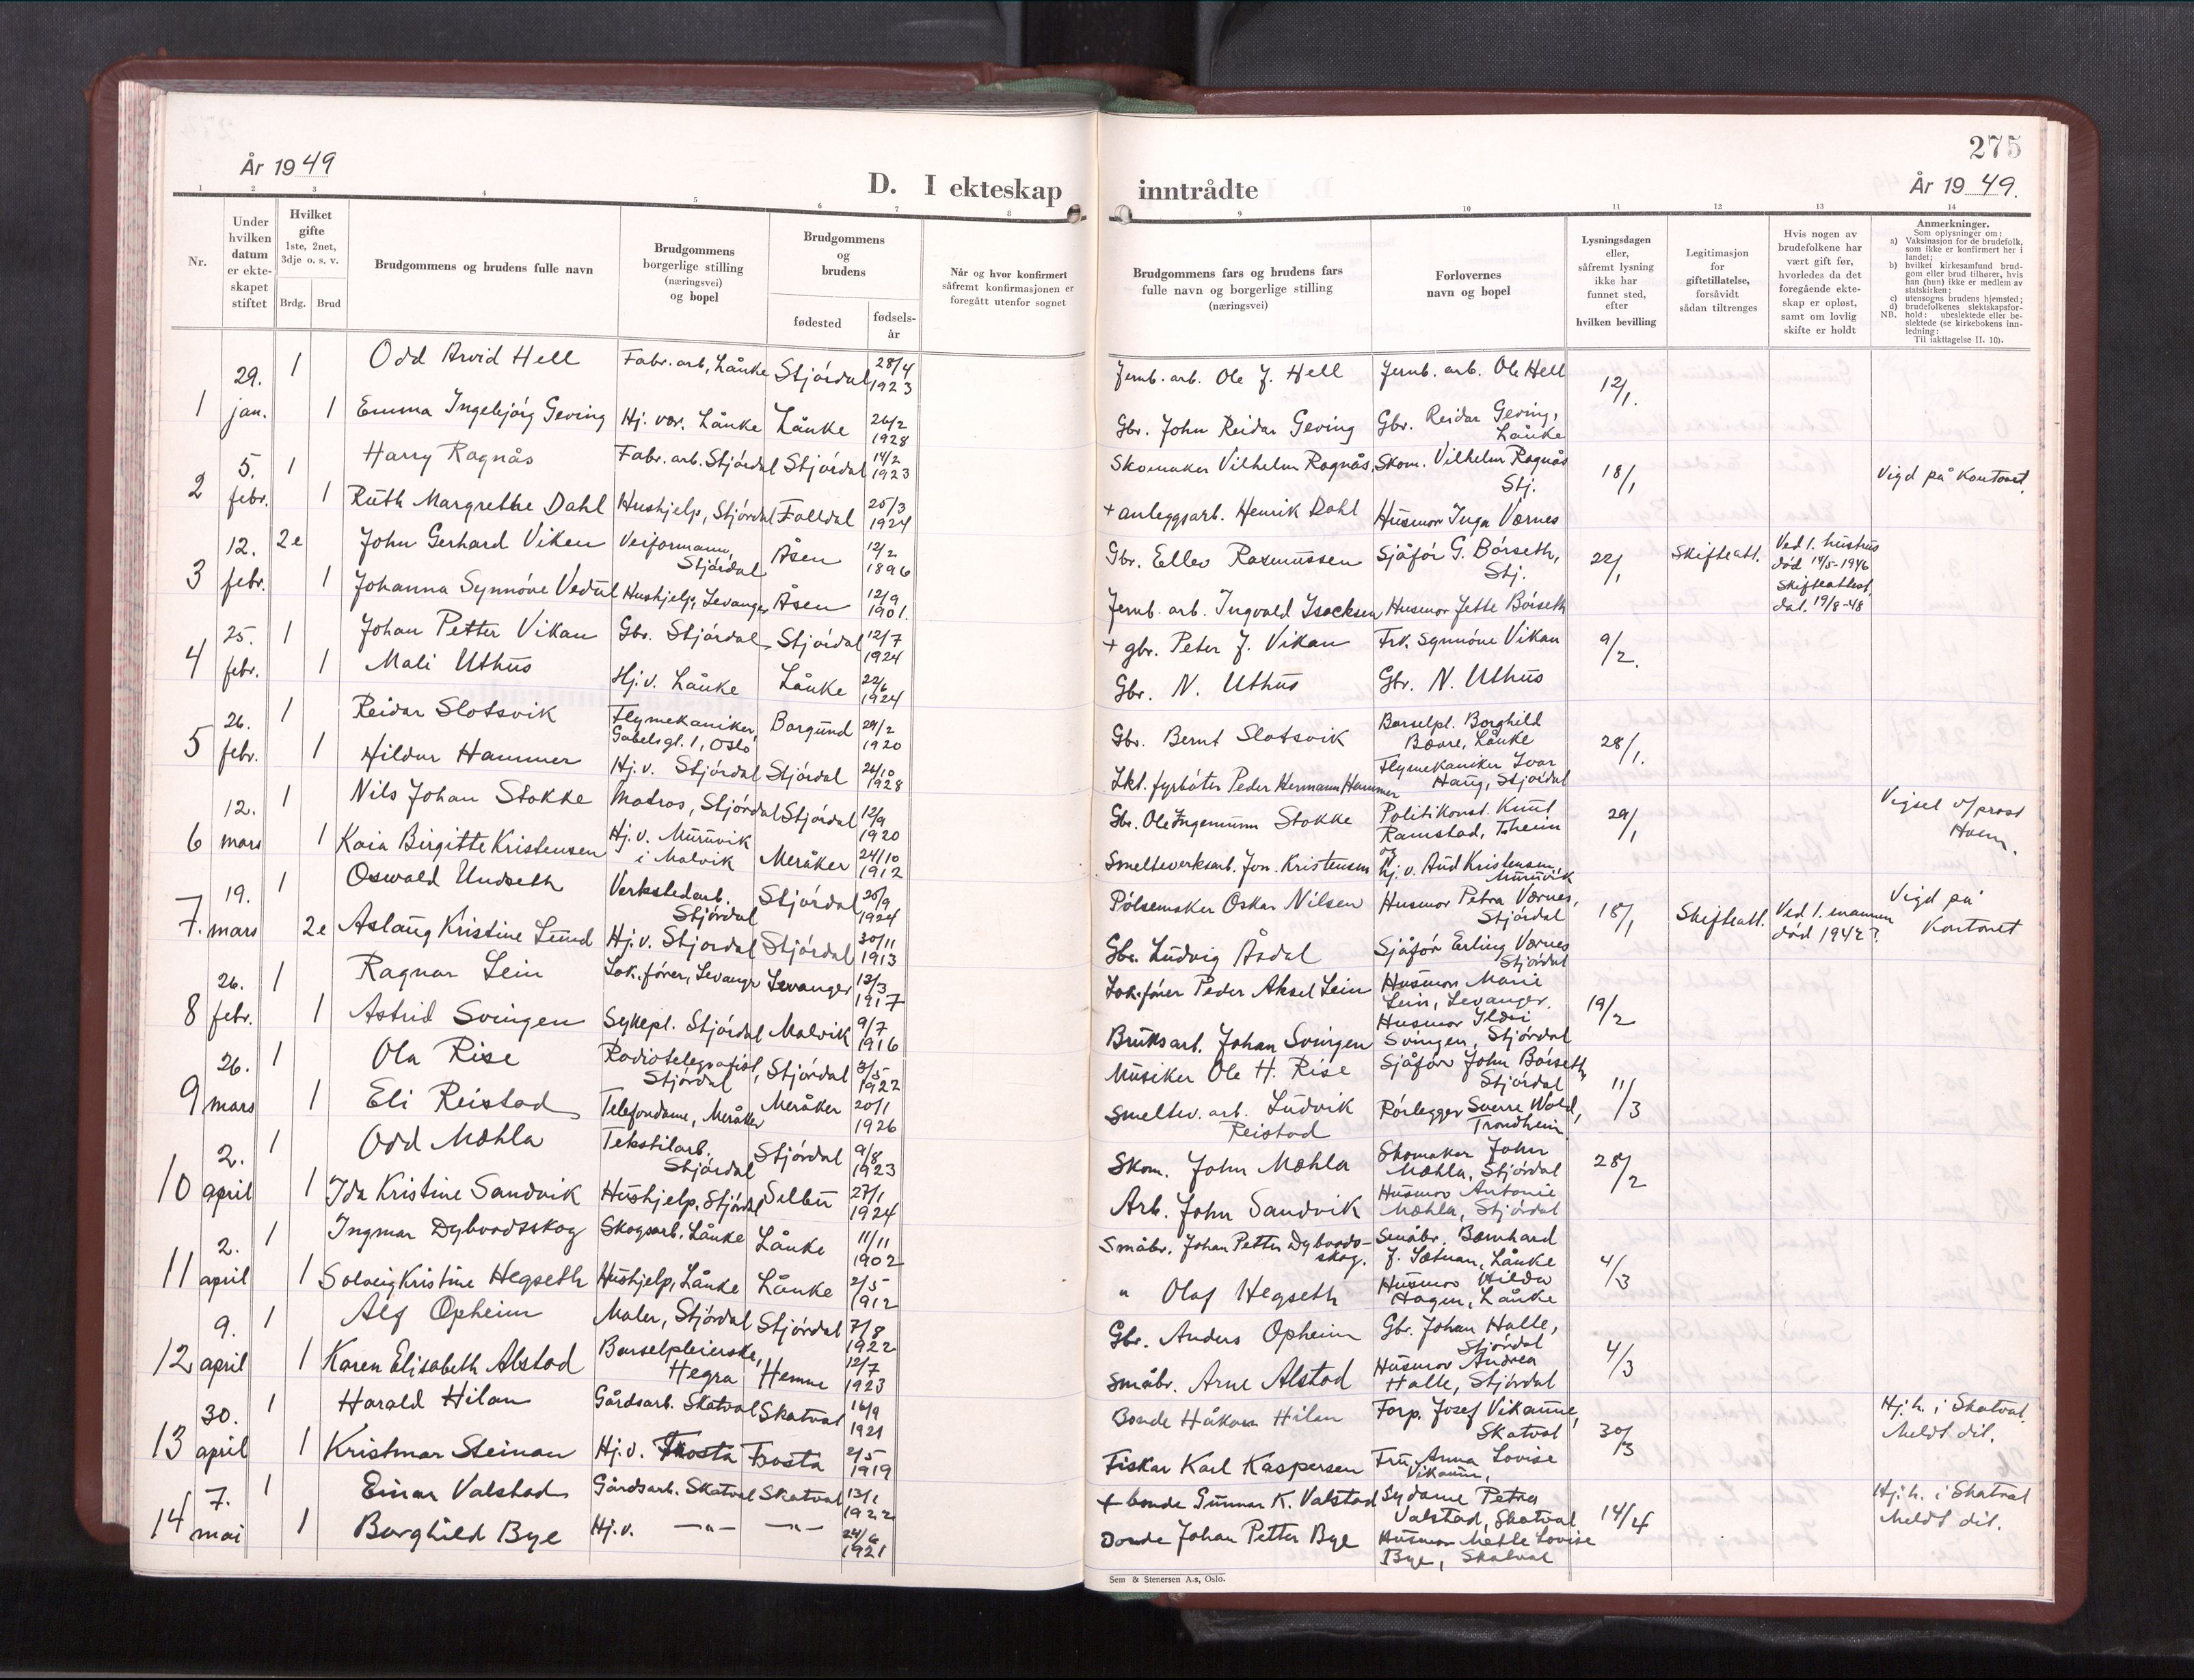 275
År 1949
År 1949.
D. I ekteskap inntrådte
1 2 3 4 5 6 7 8 9 10 11 12 13 14
Nr.
Under hvilken datum er ekteskapet stiftet
Hvilket gifte 1ste, 2net, 3dje o. s. v.
Brdg. Brud
Brudgommens og brudens fulle navn
Brudgommens borgerlige stilling (næringsvei) og bopel
Brudgommens og brudens
fødested
fødselsår
Når og hvor konfirmert såfremt konfirmasjonen er foregått utenfor sognet
Brudgommens fars og brudens fars fulle navn og borgerlige stilling (næringsvei)
Forlovernes navn og bopel
Lysningsdagen eller, såfremt lysning ikke har funnet sted, efter hvilken bevilling
Legitimasjon for giftetillatelse, forsåvidt sådan tiltrenges
Hvis nogen av brudefolkene har vært gift før, hvorledes da det foregående ekteskap er opløst, samt om lovlig skifte er holdt
Anmerkninger.
Som oplysninger om:
a) Vaksinasjon for de brudefolk, som ikke er konfirmert her i landet;
b) hvilket kirkesamfund brudgom eller brud tilhører, hvis han (hun) ikke er medlem av statskirken;
c) utensogns brudens hjemsted;
d) brudefolkenes slektskapsforhold: ubeslektede eller beslektede (se kirkebokens innledning:
NB. Til iakttagelse II. 10).
1 29. jan. 1 Odd Arvid Hell Fabr. arb, Lånke Stjórdal 28/4 1923 Jernb. arb. Ole J. Hell Jernb. arb. Ole Hell 12/1.
1 Emma Ingebjórg Geving Hj. vær. Lånke Lånke 26/2 1928 Gbr. John Reidar Geving Gbr. Reidar Geving, Lånke
2 5. febr. 1 Harry Ragnås Fabr. arb. Stjórdal Stjórdal 14/2 1923 Skomaker Vilhelm Ragnås Skom. Vilhelm Ragnås Stj. 18/1 Vigd på Kontoret.
1 Ruth Margrethe Dahl Hushjelp, Stjórdal Folldal 25/3 1924 + anleggsarb. Henrik Dahl Husmor Inga Værnes
3 12. febr. 2e John Gerhard Viken Veiformann, Stjórdal Åsen 12/2 1896 Gbr. Ellev Rasmussen Sjåfór G. Bórseth, Stj. 22/1 Skifteatt. Ved 1. hustrus død 14/5-1946 Skifteattest dat. 19/8-48
1 Johanna Synnóve Vedul Hushjelp, Levanger Åsen 12/9 1901. Jernb. arb. Ingvald Isacksen Husmor Jette Bórseth
4 25. febr. 1 Johan Petter Vikan Gbr. Stjórdal Stjórdal 12/7 1924 + gbr. Peter J. Vikan Frk. Synnóve Vikan 9/2.
1 Mali Uthus Hj.v. Lånke Lånke 22/6 1924 Gbr. N. Uthus Gbr. N. Uthus
5 26. febr. 1 Reidar Slotsvik Flymekaniker, Gabelsgt. 1, Oslo Borgund 29/2 1920 Gbr. Bernt Slotsvik Barselpl. Borghild Bævre, Lånke 28/1.
1 Hildur Hammer Hj.v. Stjórdal Stjórdal 26/10 1928 Lkt. fyrbóter Peder Hermann Hammer Flymekaniker Ivar Haug, Stjórdal
6 12. mars 1 Nils Johan Stokke Matros, Stjórdal Stjórdal 12/9 1920 Gbr. Ole Ingemunn Stokke Politikonst. Knut Ramstad, Tr.heim og 29/1 Vigsel v/prost Hoem.
1 Kaia Birgitte Kristensen Hj.v. Muruvik i Malvik Meråker 24/10 1912 Smelteverksarb. Jon. Kristensen Hj.v. Aud Kristensen, Muruvik
7. 19. mars 1 Oswald Undseth Verkstedarb. Stjórdal Stjórdal 28/9 1924 Pólsemaker Oskar Nilsen Husmor Petra Værnes, Stjórdal 18/1 Skifteatt. Ved 1. mannen død 1942? Vigd på Kontoret
2e Aslaug Kristine Lund Hj.v. Stjordal Stjórdal 30/11 1913 Gbr. Ludvig Åsdal Sjåfór Erling Værnes Stjórdal
8 26. febr. 1 Ragnar Lein Lok.fórer, Levanger Levanger 13/3 1917 Lok.fórer Peder Aksel Lein Husmor Marie Lein, Levanger. 19/2
1 Astrid Svingen Sykepl. Stjórdal Malvik 9/7 1916 Bruksarb. Johan Svingen Husmor Ildri Svingen, Stjórdal
9 26. mars 1 Ola Rise Radiotelegrafist, Stjórdal Stjórdal 3/5 1922 Musiker Ole H. Rise Sjåfór John Bórseth, Stjórdal 11/3
1 Eli Reistad Telefondame, Meråker Meråker 20/1 1926 Smeltev. arb. Ludvik Reistad Rórlegger Sverre Wold, Trondheim
10 2. april 1 Odd Mæhla Tekstilarb. Stjórdal Stjórdal 9/8 1923 Skom. John Mæhla Skomaker John Mæhla, Stjórdal 28/2
1 Ida Kristine Sandvik Hushjelp, Stjórdal Selbu 27/1 1924 Arb. John Sandvik Husmor Antonie Mæhla, Stjórdal
11 2. april 1 Ingmar Dybvadsskog Skogsarb. Lånke Lånke 11/11 1902 Småbr. Johan Petter Dybvads-skog. Småbr. Bernhard J. Sætnan, Lånke 4/3
1 Solveig Kristine Hegseth Hushjelp, Lånke Lånke 2/5 1912 " Olaf Hegseth Husmor Hilda Hagen, Lånke
12 9. april 1 Alf Opheim Maler, Stjórdal Stjórdal 7/8 1922 Gbr. Anders Opheim Gbr. Johan Halle, Stjórdal 4/3
1 Karen Elisabeth Alstad Barselpleierske, Hegra Hemne 12/7 1923 Småbr. Arne Alstad Husmor Andrea Halle, Stjórdal
13 30. april 1 Harald Hilan Gårdsarb. Skatval Skatval 16/9 1921 Bonde Håkon Hilan Forp. Josef Vikanne, Skatval 30/3 Hj.h. i Skatval. Meldt dit.
1 Kristmar Steinan Hj.v. Frosta Frosta 2/5 1919 Fisker Karl Kaspersen Fru Anna Lovise Vikann,
14 7. mai 1 Einar Valstad Gårdsarb. Skatval Skatval 13/1 1922 + bonde Gunnar K. Valstad Sydame Petra Valstad, Skatval 14/4 Hj.h. i Skatval Meldt dit.
1 Borghild Bye Hj.v. —"— —"— 24/6 1921 Bonde Johan Petter Bye Husmor Mette Lovise Bye, Skatval
Sem & Stenersen A.s, Oslo.